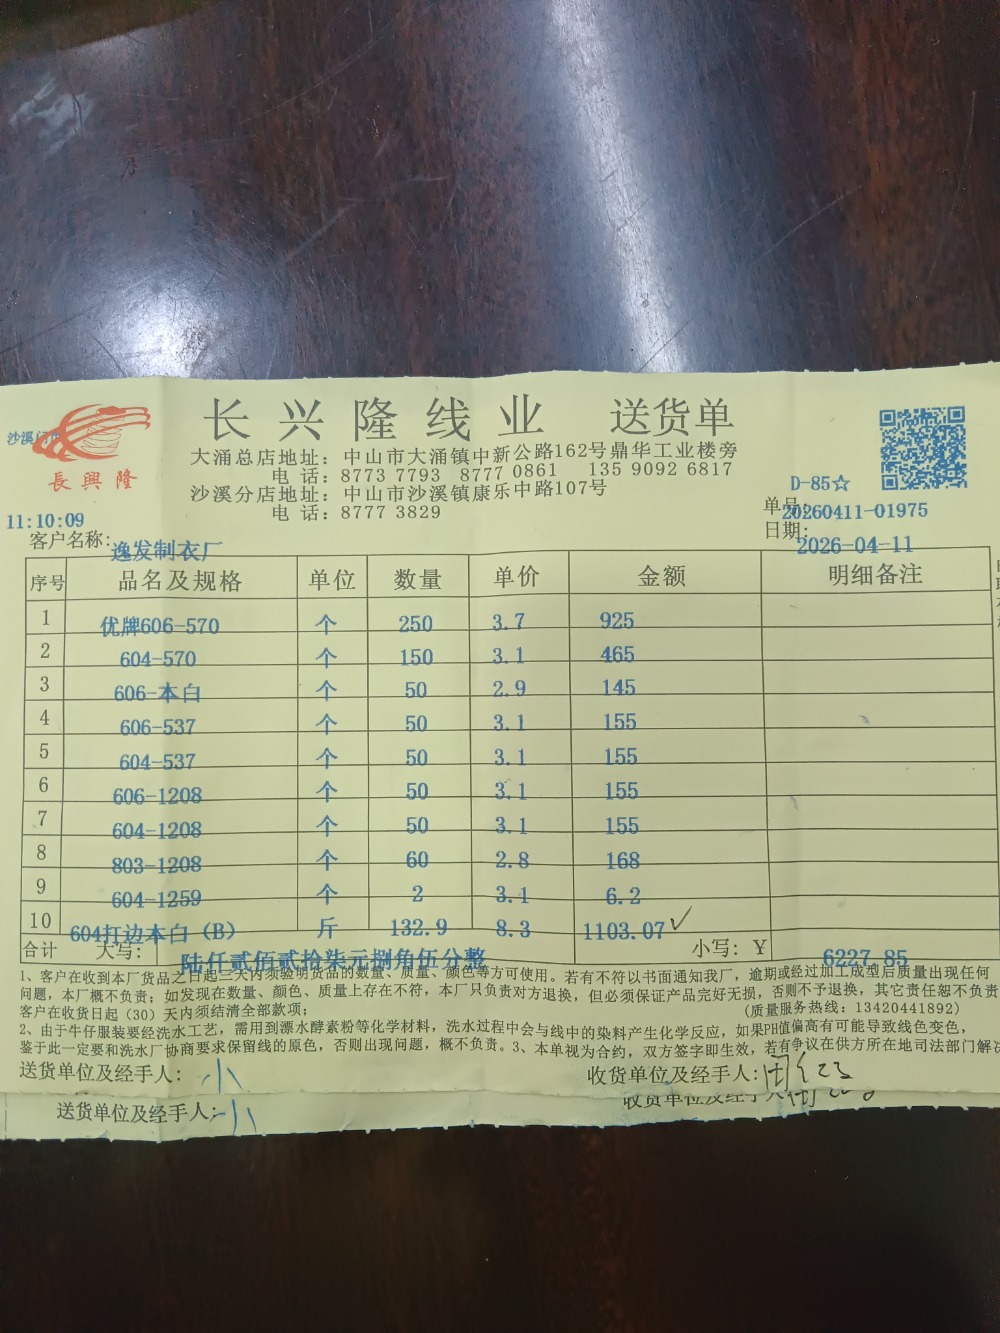 长兴隆线业 送货单
沙溪门
長興隆
大涌总店地址：中山市大涌镇中新公路162号鼎华工业楼旁
电 话：8773 7793 8777 0861 135 9092 6817
沙溪分店地址：中山市沙溪镇康乐中路107号
电 话：8777 3829
D-85☆
11:10:09
单号:20260411-01975
日期:2026-04-11
客户名称:逸发制衣厂
序号 品名及规格 单位 数量 单价 金额 明细备注
1 优牌606-570 个 250 3.7 925
2 604-570 个 150 3.1 465
3 606-本白 个 50 2.9 145
4 606-537 个 50 3.1 155
5 604-537 个 50 3.1 155
6 606-1208 个 50 3.1 155
7 604-1208 个 50 3.1 155
8 803-1208 个 60 2.8 168
9 604-1259 个 2 3.1 6.2
10 604扛边本白（B） 斤 132.9 8.3 1103.07✓
合计 大写: 陆仟贰佰贰拾柒元捌角伍分整 小写: ￥ 6227.85
1、客户在收到本厂货品之日起三天内须验明货品的数量、质量、颜色等方可使用。若有不符以书面通知我厂，逾期或经过加工成型后质量出现任何
问题，本厂概不负责；如发现在数量、颜色、质量上存在不符，本厂只负责对方退换，但必须保证产品完好无损，否则不予退换，其它责任恕不负责
客户在收货日起（30）天内须结清全部款项； (质量服务热线：13420441892)
2、由于牛仔服装要经洗水工艺，需用到漂水酵素粉等化学材料，洗水过程中会与线中的染料产生化学反应，如果PH值偏高有可能导致线色变色，
鉴于此一定要和洗水厂协商要求保留线的原色，否则出现问题，概不负责。3、本单视为合约，双方签字即生效，若有争议在供方所在地司法部门解决
送货单位及经手人: 小 收货单位及经手人:
送货单位及经手人: 小 收货单位及经手人